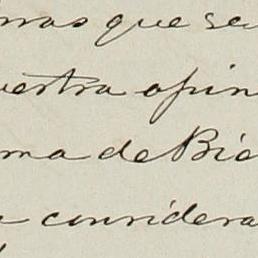 mas que se
uestra opin
ma de Bie
a considera